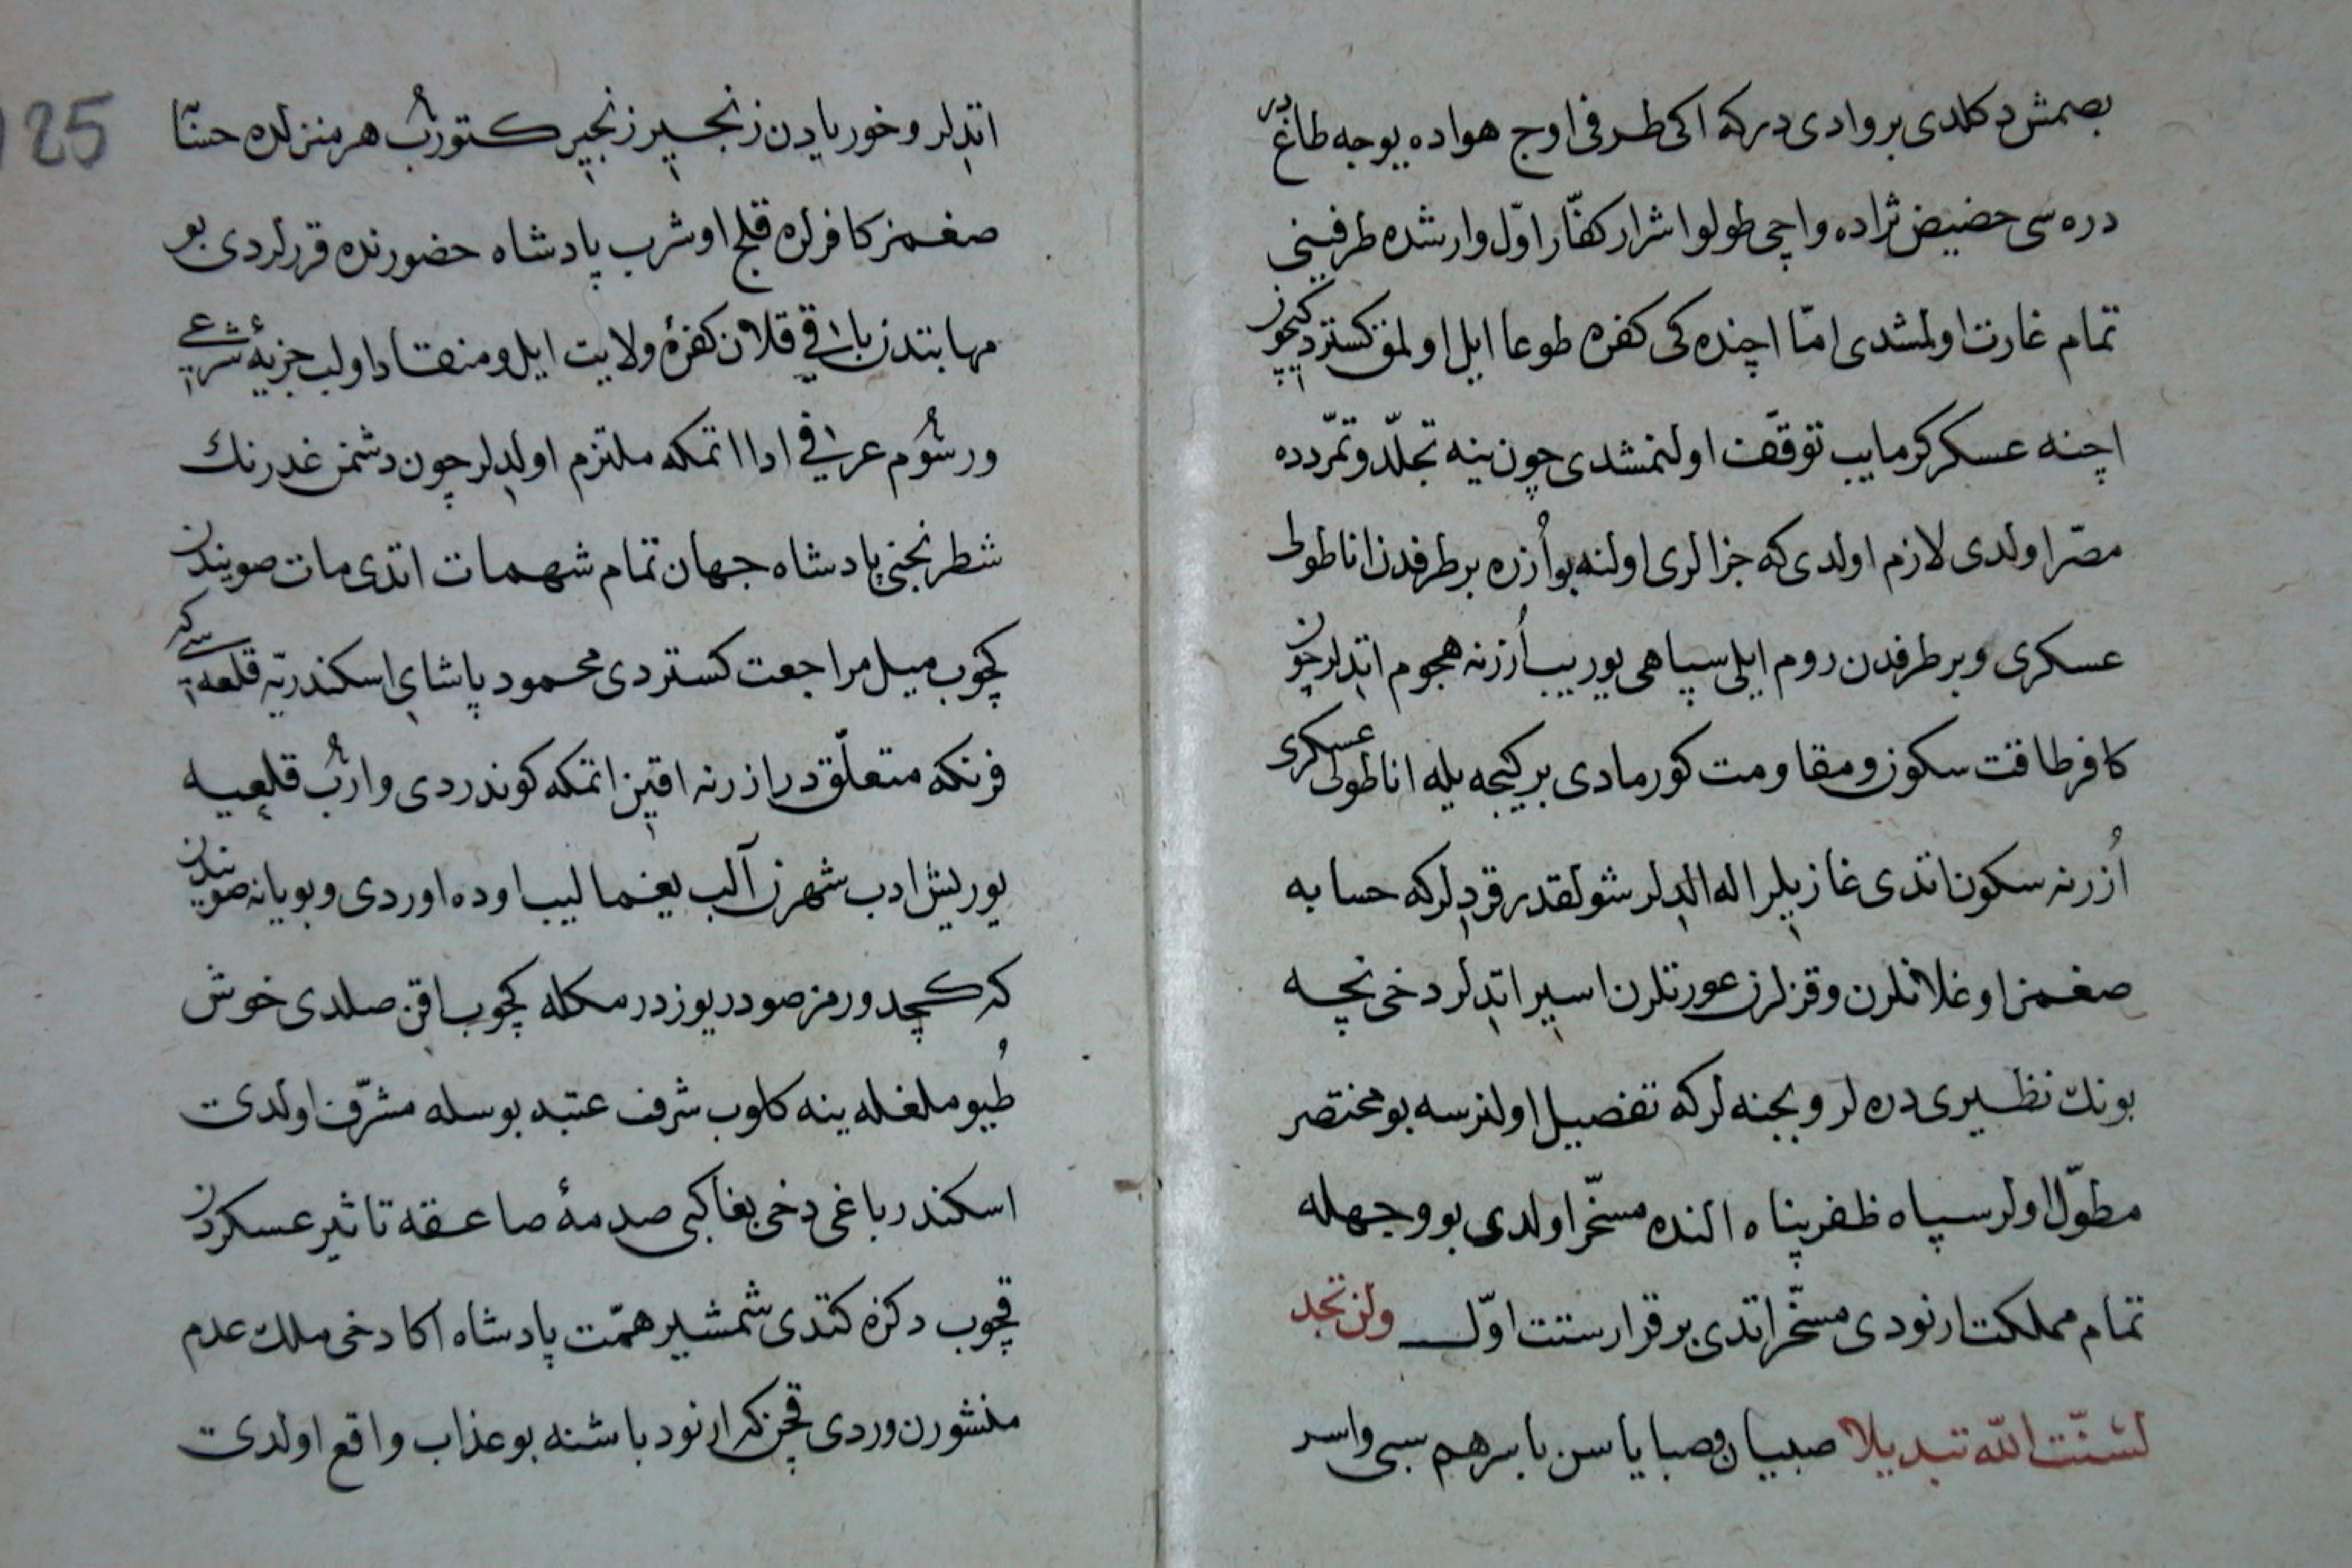 بصمش دكلدی بر وادی درکه اکی طرفی اوج هواده یوجه طاغدر
دره سی حضیض ثراده واچی طولو اشرار کفّار اوّل وارشده طرفینی
تمام غارت اولمشدی امّا اچنده کی کفره طوعا ایل اولمق کستردیکیچون
اچنه عسکر کرمایب توقّف اولنمشدی چون ینه تجلّد و تمرّدده
مصّر اولدی لازم اولدی که جزالری اولنه بو اُزره بر طرفدن اناطولی
عسکری و بر طرفدن روم ایلی سپاهی یوریب اُزرنه هجوم اتدلر چون
کافر طاقت سکوز و مقاومت کورمادی بر کیجه یله اناطولی عسکری
اُزرنه سکون اتدی غازیلر اله الدلر شولقدر قردلر که حسابه
صغمز اوغلانلرن و قزلرن عورتلرن اسیر اتدلر دخی نچه
بونك نظیری دره لر و بجنه لر که تفصیل اولنرسه بو مختصر
مطوّل اولر سپاه ظفر پناه النده مسخّر اولدی بو وجهله
تمام مملکت ارنودی مسخّر اتدی بر قرار سنت اوّل ولن تجد
لسنّت الله تبدیلا صبیان و صبایا سن باسرهم سبی و اسر
125
اتدلر و خوریادن زنجیر زنجیر کتورُب هر منزلده حسّا
صغمز کافرلره قلج اوشرب پادشاه حضورنده قررلردی بو
مهابتدن باقی قلان کفرهٔ ولایت ایل و منقاد اولب جزیهٔ شرعی
و رسُوم عرفی ادا اتمکه ملتزم اولدلر چون دشمن غدرنك
شطرنجنی پادشاه جهان تمام شهمات اتدی مات صویندن
کچوب میل مراجعت کستردی محمود پاشای اسکندریّه قلعه سی که
فرنکه متعلّق در ازرنه اقین اتمکه کوندردی وارُب قلعیه
یوریش ادب شهرن آلب یغمالیب اوده اوردی و بویانه صویندن
که کچد ورمز صودر یوزدرمکله کچوب اقن صلدی خوش
طُیوملغله ینه کلوب شرف عتبه بوسله مشرّف اولدی
اسکندر باغی دخی بغاکبی صدمهٔ صاعقه تاثیر عسکردن
قچوب دکزه کتدی شمشیر همّت پادشاه اکا دخی ملك عدم
منشورن وردی قچن که ارنود باشنه بو عذاب واقع اولدی